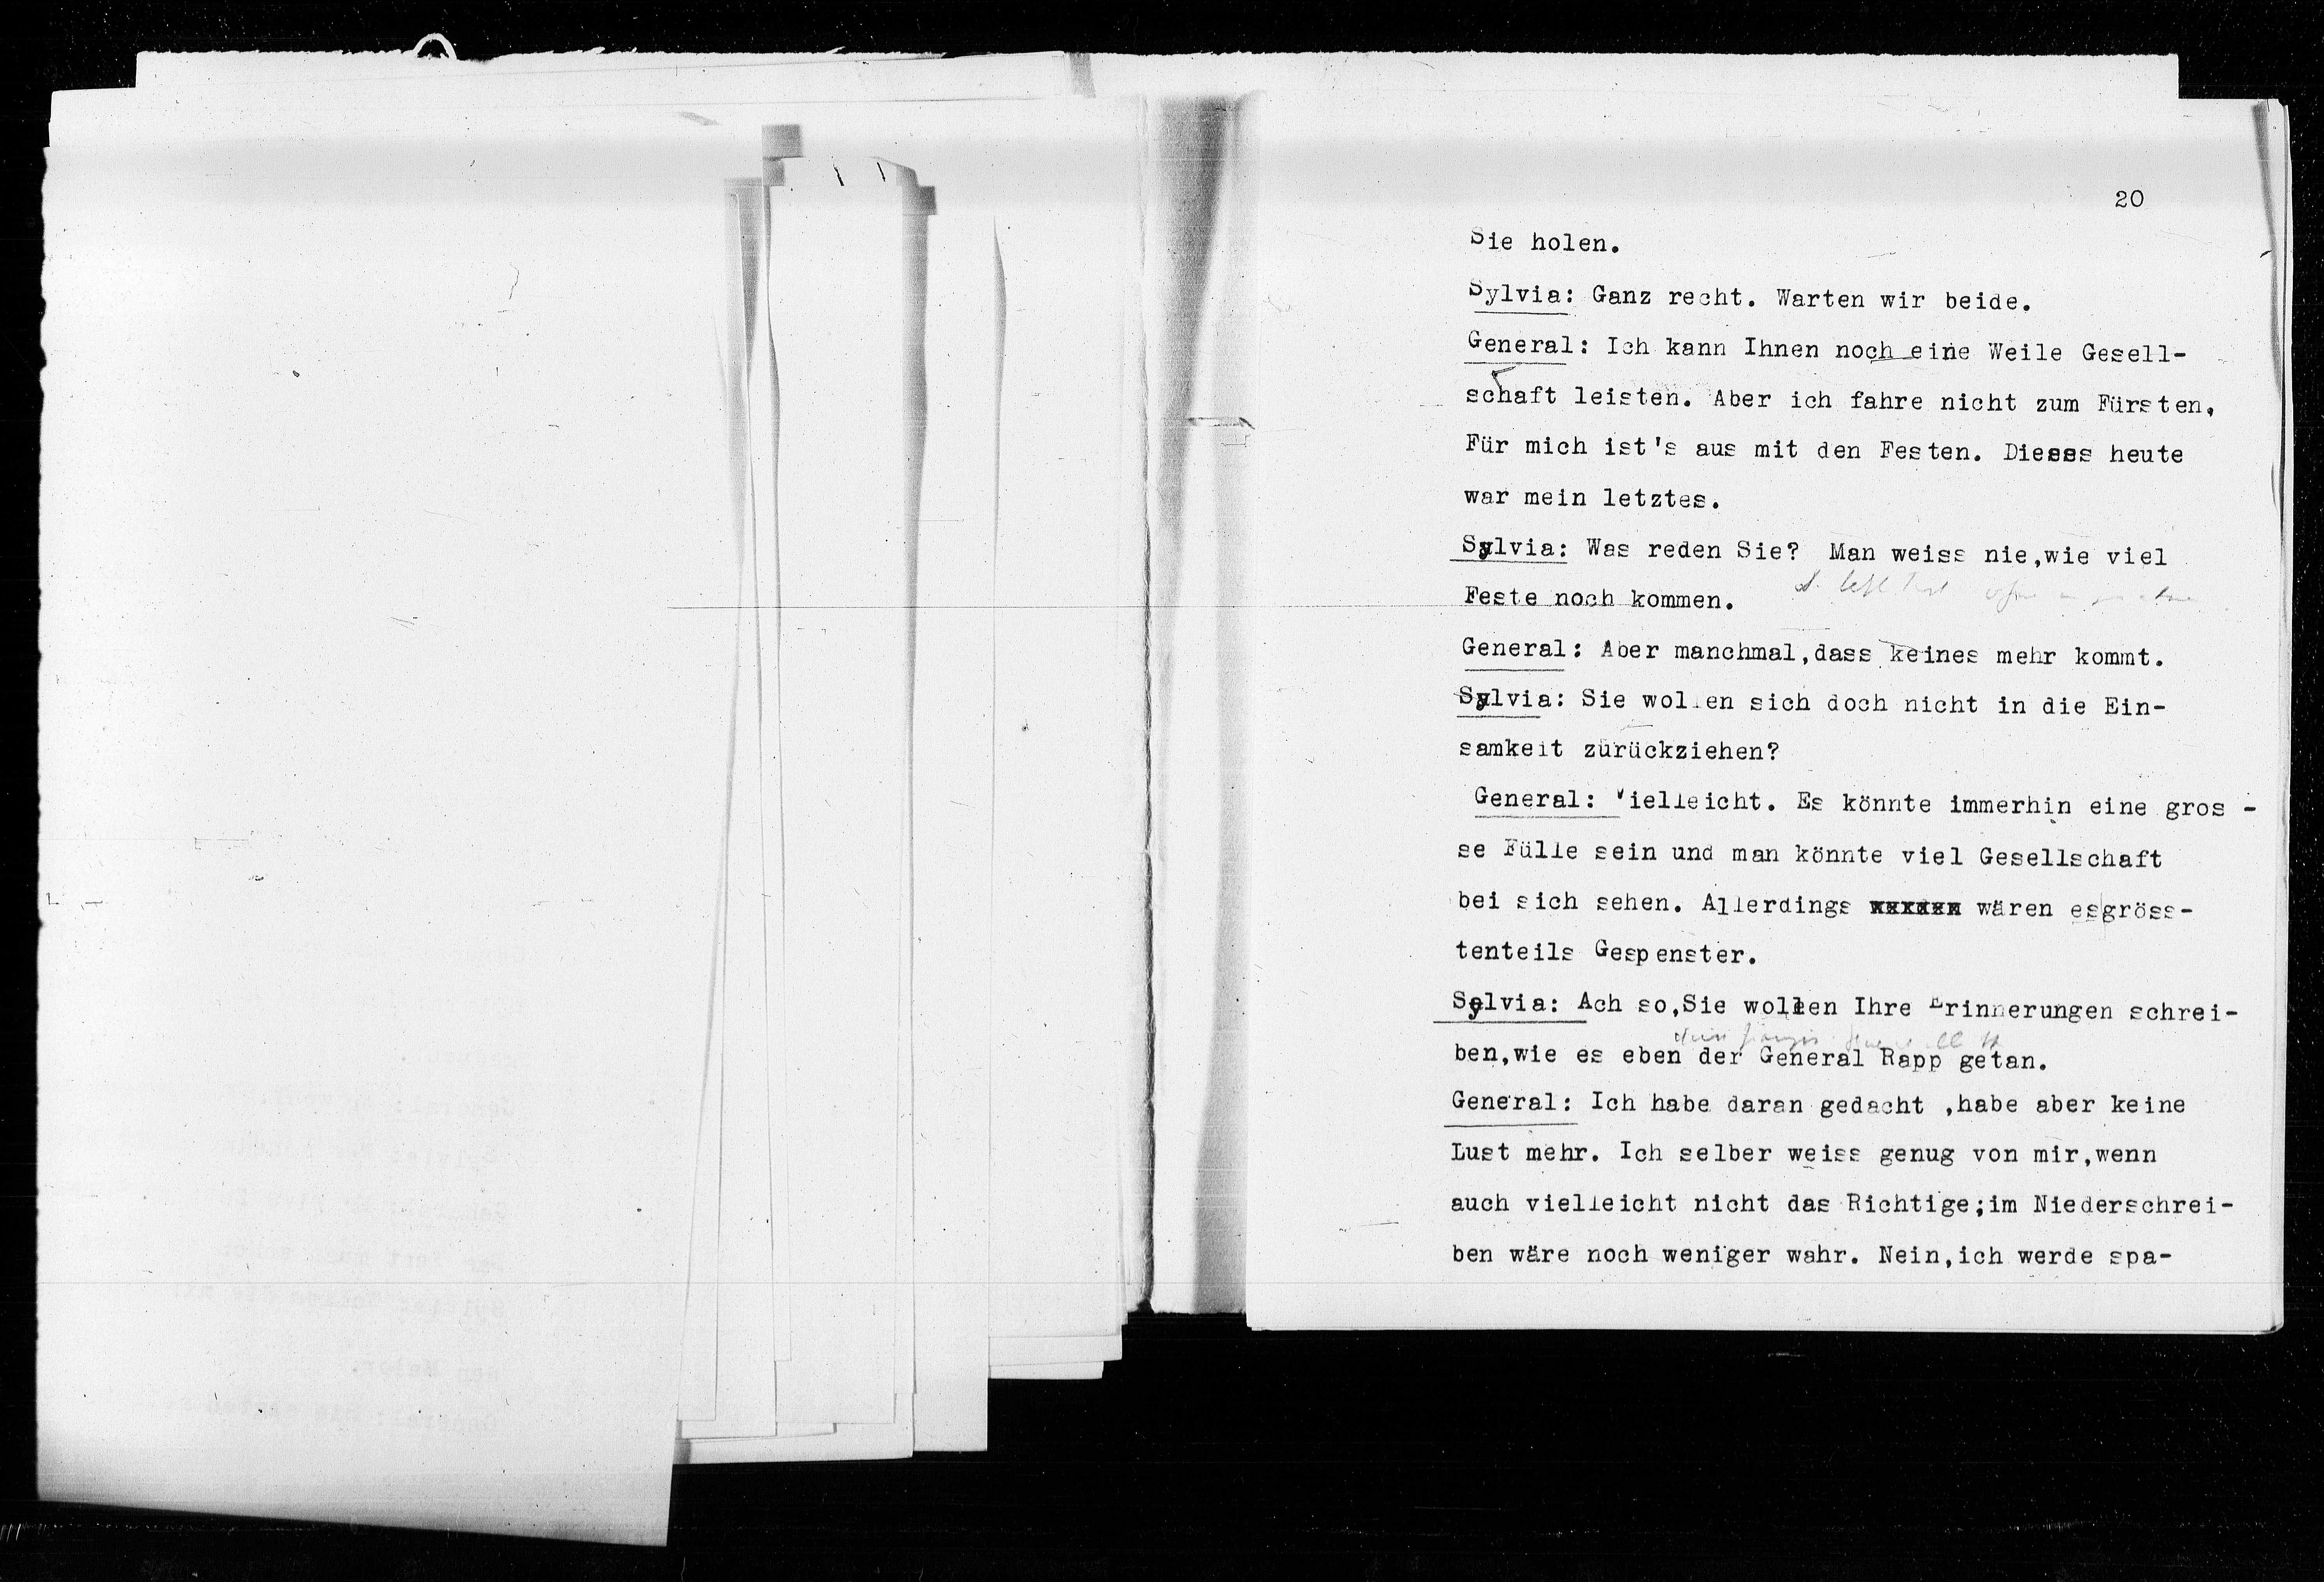 20
Sie holen.
Sylvia: Ganz recht. Warten wir beide.
General: Ich kann Ihnen noch eine Weile Gesell-
schaft leisten. Aber ich fahre nicht zum Fürsten,
Für mich ist's aus mit den Festen. Dieses heute
war mein letztes.
Sylvia: Was reden Sie? Man weiss nie,wie viel
Feste noch kommen.
General: Aber manchmal,dass keines mehr kommt.
Sylvia: Sie wollen sich doch nicht in die Ein-
samkeit zurückziehen?
General: Vielleicht. Es könnte immerhin eine gros -
se Fülle sein und man könnte viel Gesellschaft
bei sich sehen. Allerdings wären es gröss-
tenteils Gespenster.
Sylvia: Ach so,Sie wollen Ihre Erinnerungen schrei-
ben,wie es eben der General Rapp getan.
General: Ich habe daran gedacht ,habe aber keine
Lust mehr. Ich selber weiss genug von mir,wenn
auch vielleicht nicht das Richtige;im Niederschrei-
ben wäre noch weniger wahr. Nein,ich werde spa-